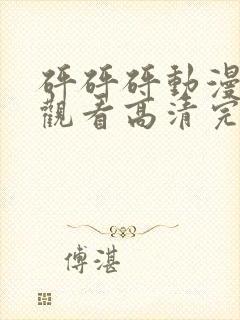 砰砰砰動漫
觀看高清完
傅湛